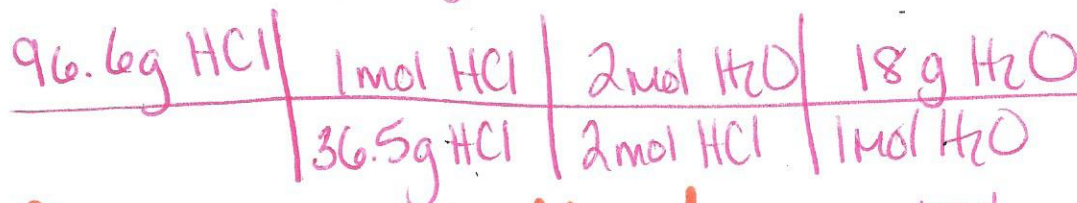 96.6g HCl 1mol HCl 2mol H2O 18g H2O
36.5g HCl 2mol HCl 1mol H2O